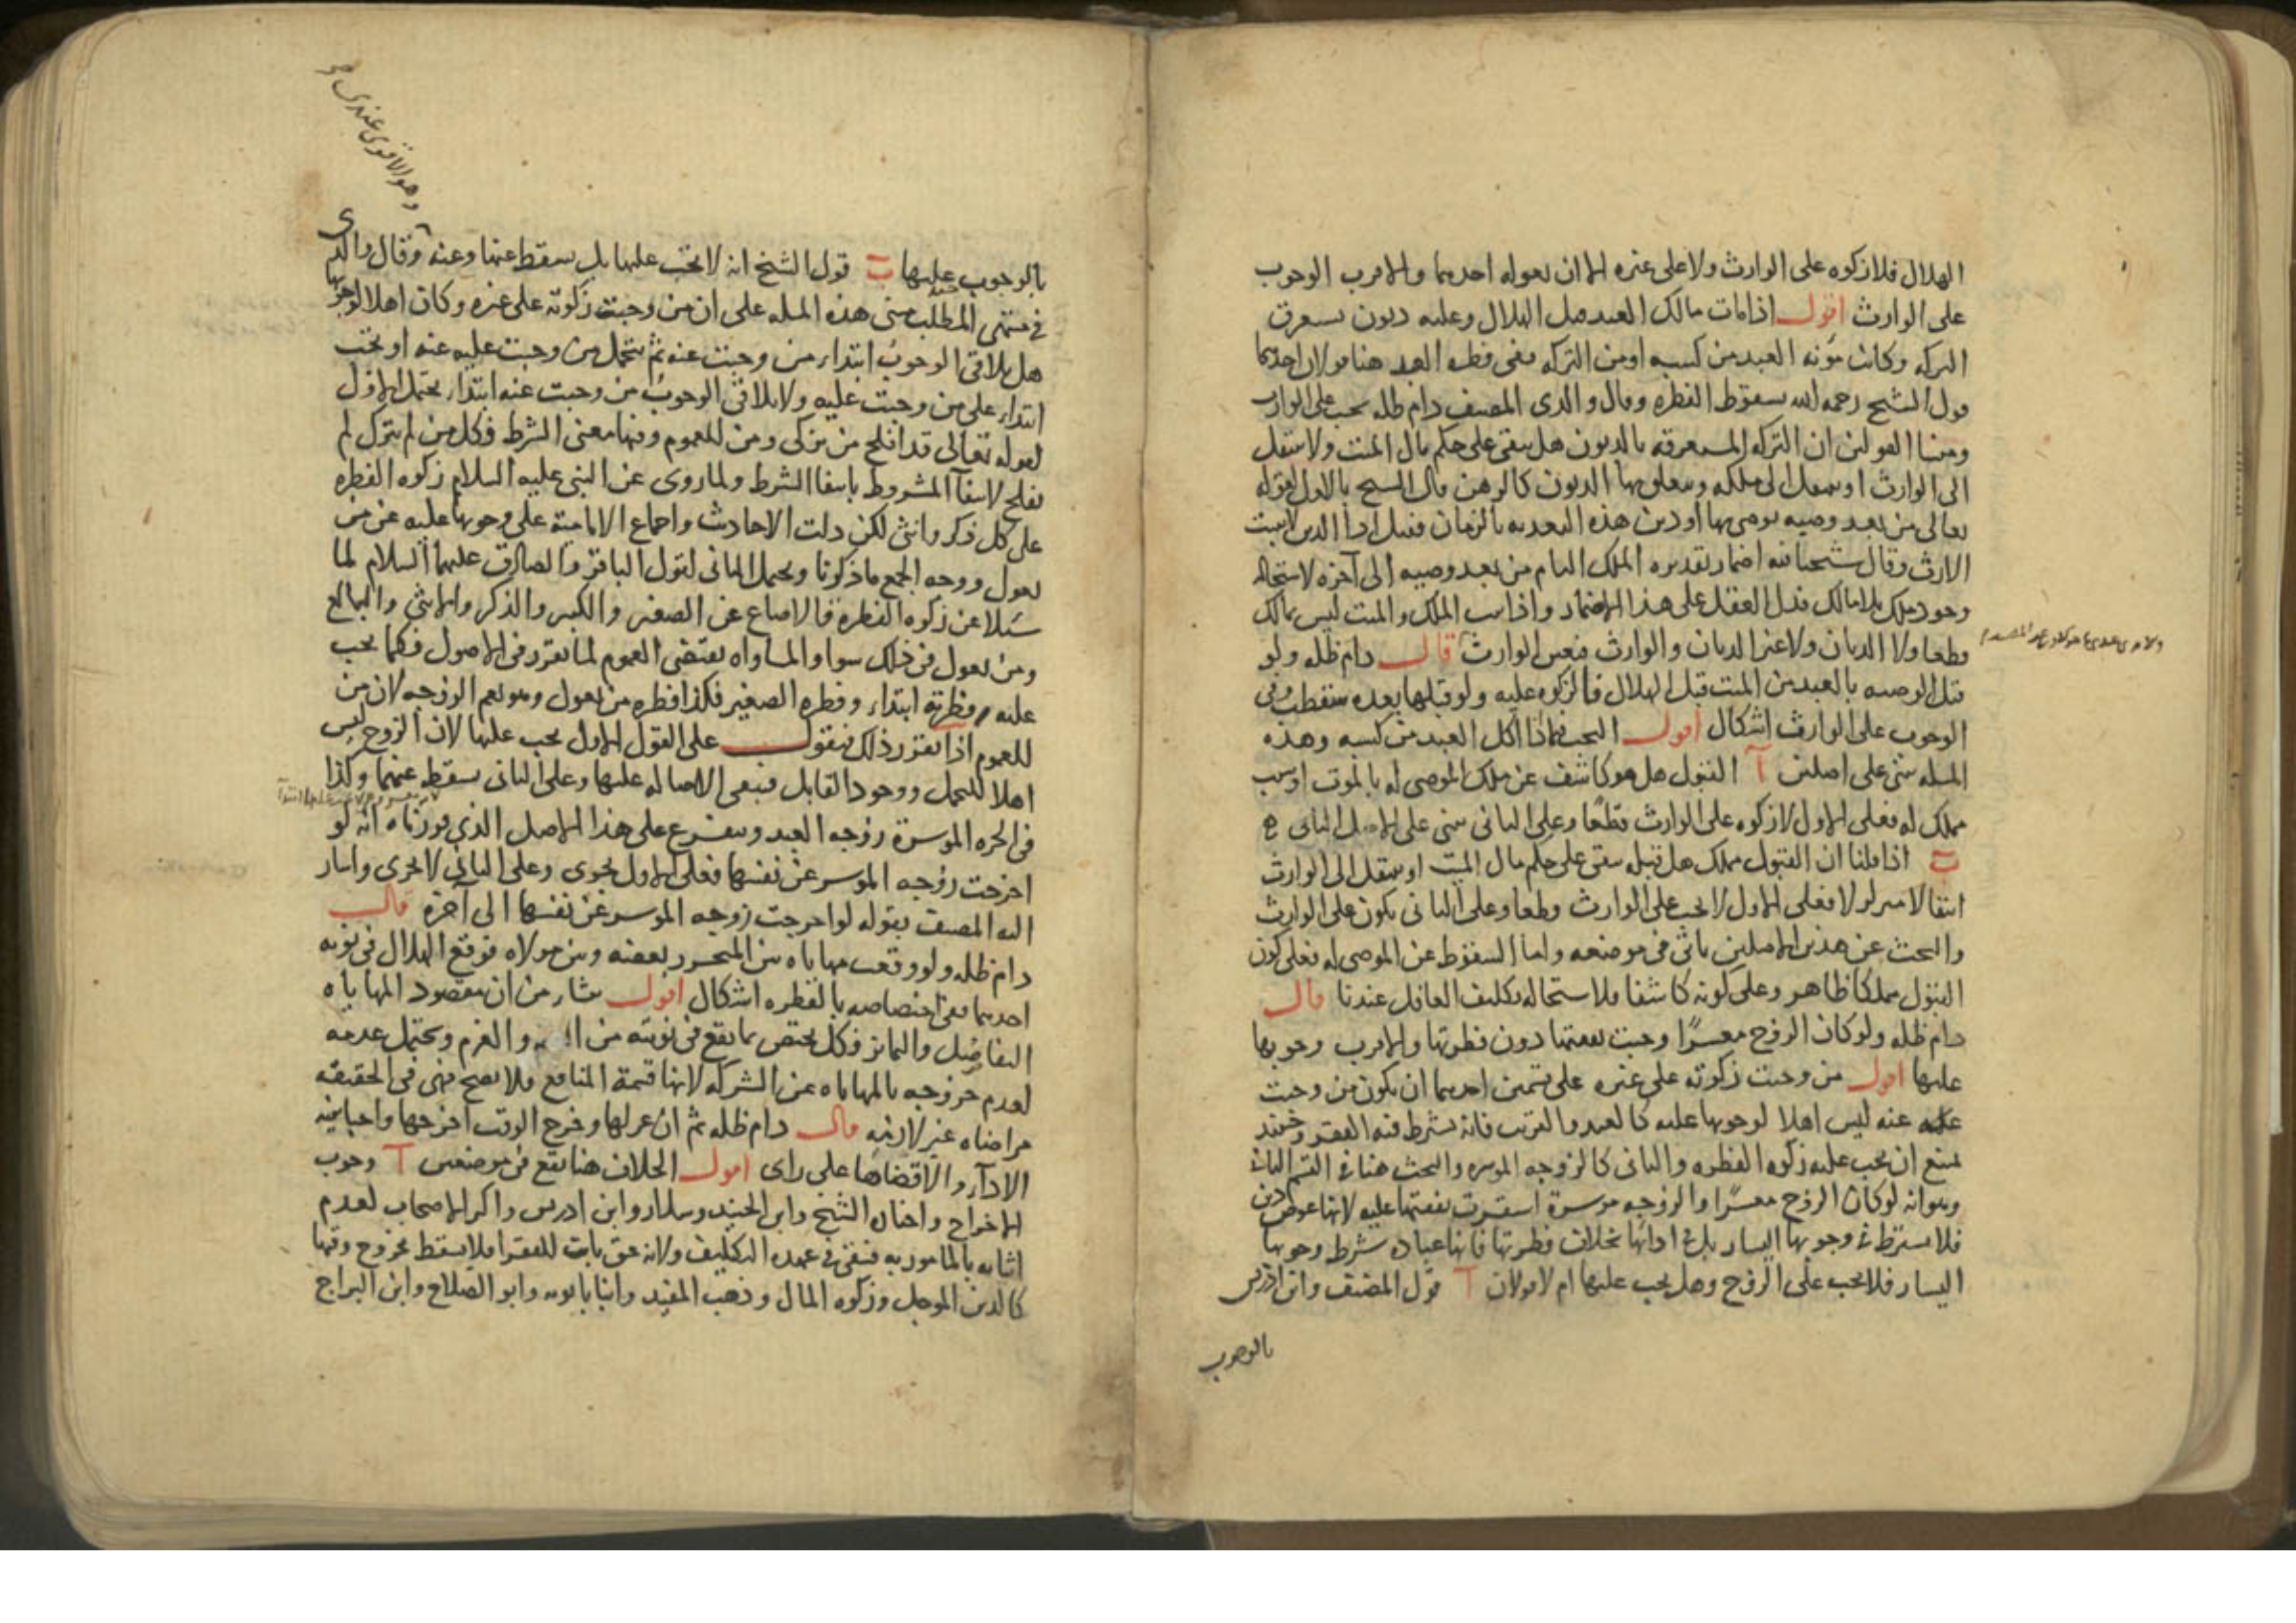 الهلال فلا زكوه على الوارث ولا على غيره الا ان يعوله احدهما والاقرب الوجوب
على الوارث اقول اذا مات مالك العبد قبل الهلال وعليه ديون يستغرق
التركه وكانت مؤنه العبد من كسبه او من التركه ففى فطره العبد هنا قولان احدهما
قول الشيخ رحمه الله بسقوط الفطره وقال والدى المصنف دام ظله يجب على الوارث
ومبنا القولين ان التركه المستغرقه بالديون هل يبقى على حكم مال الميت ولا ينتقل
الى الوارث او ينتقل الى ملكه ويتعلق بها الديون كالرهن قال الشيخ بالاول لقوله
تعالى من بعد وصيه يوصى بها او دين هذه البعديه بالزمان فقبل اداء الدين لا يثبت
الارث وقال شيخنا فيه اضمار تقديره الملك التام من بعد وصيه الى آخره لاستحاله
وجود ملك بلا مالك فدل العقل على هذا الاضمار واذا ثبت الملك والميت ليس بمالك
قطعا ولا الديان ولا غير الديان والوارث فتعين الوارث قال دام ظله ولو
قبل الوصيه بالعبد من الميت قبل الهلال فالزكوه عليه ولو قبلها بعده سقطت وفى
الوجوب على الوارث اشكال اقول البحث فيما اذا اكل العبد من كسبه وهذه
المسله تبنى على اصلين آ القبول هل هو كاشف عن ملك الموصى له بالموت او سبب
مملك له فعلى الاول لا زكوه على الوارث قطعًا وعلى الثانى يبنى على الاصل الثانى
ب اذا قلنا ان القبول مملك هل قبله يبقى على حكم مال الميت او ينتقل الى الوارث
انتقالا متزلزلا فعلى الاول لا يجب على الوارث قطعا وعلى الثانى يكون على الوارث
والبحث عن هذين الاصلين ياتى فى موضعه واما السقوط عن الموصى له فعلى كون
القبول مملكا ظاهر وعلى كونه كاشفا فلاستحاله تكليف الغافل عندنا قال
دام ظله ولو كان الزوج معسرًا وجبت نفقتها دون فطرتها والاقرب وجوبها
عليها اقول من وجبت زكوته على غيره على قسمين احدهما ان يكون من وجبت
عنه ليس اهلا لوجوبها عليه كالعبد والقريب فانه يشترط فيه الفقر وحينئذ
يمتنع ان يجب عليه زكوه الفطره والثانى كالزوجه الموسره والبحث هنا فى القسم الثانى
وهو انه لو كان الزوج معسرًا والزوجه موسرة استقرت نفقتها عليه لانها عوض دين
فلا يشترط فى وجوبها اليسار بل فى ادائها بخلاف فطرتها فانها عباده شرط وجوبها
اليسار فلا يجب على الزوج وهل يجب عليها ام لا قولان آ قول المصنف وابن ادريس
بالوجوب
وهو الاقوى عندى
بالوجوب عليها ب قول الشيخ انه لا يجب عليها بل يسقط عنها وعنه وقال والدى
فى منتهى المطلب مبنى هذه المسله على ان من وجبت زكوته على غيره وكان اهلا لوجوبها
هل يلاقى الوجوب ابتداء من وجبت عنه ثم يتحمل من وجبت عليه عنه او تجب
ابتداء على من وجبت عليه ولا يلاقى الوجوب من وجبت عنه ابتداء يحتمل الاول
لقوله تعالى قد افلح من تزكى ومن للعموم وفيها معنى الشرط فكل من لم يتزك لم
يفلح لانتفآء المشروط بانتفاء الشرط ولما روى عن النبى عليه السلام زكوه الفطره
على كل ذكر وانثى لكن دلت الاحاديث واجماع الاماميه على وجوبها عليه عن من
يعول ووجه الجمع ما ذكرنا ويحتمل الثانى لقول الباقر والصادق عليهما السلام لما
سئلا عن زكوه الفطره قالا صاع عن الصغير والكبير والذكر والانثى والبالغ
ومن يعول فى ذلك سوا والمساواه يقتضى العموم لما تقرر فى الاصول فكما يجب
عليه فطرته ابتداء وفطره الصغير فكذا فطره من يعول وهو يعم الزوجه لان من
للعموم اذا تقرر ذلك فنقول على القول الاول يجب عليها لان الزوج ليس
اهلا للتحمل ووجود القابل فبقى الاصاله عليها وعلى الثانى سقط عنهما وكذا
فى الحره الموسرة زوجه العبد ويتفرع على هذا الاصل الذى قررناه انه لو
اخرجت زوجه الموسر عن نفسها فعلى الاول يجزى وعلى الثانى لا يجزى واشار
اليه المصنف بقوله لو اخرجت زوجه الموسر عن نفسها الى آخره قال
دام ظله ولو وقعت مهاياه بين المتحرر بعضه وبين مولاه فوقع الهلال فى نوبه
احدهما ففى اختصاصه بالفطره اشكال اقول ينشا من ان مقصود المهاياه
التفاضل والتمايز فكل يختص بما يقع فى نوبته من والغرم ويحتمل عدمه
لعدم خروجه بالمهاياه عن الشركه لانها قسمة المنافع فلا يصح فهى فى الحقيقه
مراضاه غير لازمه قال دام ظله ثم ان عزلها وخرج الوقت اخرجها واجبا بنيه
الادآء والا قضاها على راى اقول الخلاف هنا يقع فى موضعين آ وجوب
الاخراج واختار الشيخ وابن الجنيد وسلار وابن ادريس واكثر الاصحاب لعدم
اتيانه بالمامور به فيبقى فى عهده التكليف ولانه حق ثابت للفقرا فلا يسقط بخروج وقتها
كالدين الموجل وزكوه المال وذهب المفيد وابنا بابويه وابو الصلاح وابن البراج